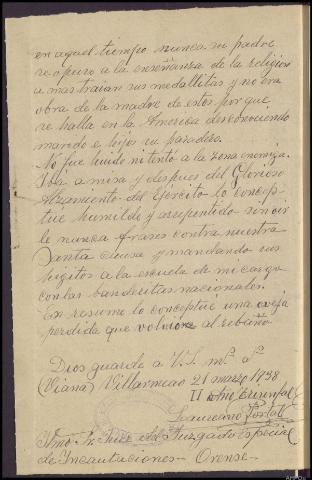 en aquel tiempo nunca su padre
se opuso a la enseñanza de la religion
a mas traian sus medallitas y no era
obra de la madre de estos porque
se halla en la America desconociendo
marido e hijos su paradero.
No fue huido ni tentó a la zona enemiga.
Iba a misa y despues del Glorioso
Alzamiento del Ejército lo concep-
tue humilde y arrepentido sin oir
le nunca frases contra nuestra
Santa causa y mandando sus
hijitos a la escuela de mi cargo
con las banderitas nacionales.
En resumen lo conceptué una oveja
perdida que volviere al rebaño.
Dios guarde a V.S. mˢ aˢ
(Viana) Villarmeao 21 marzo 1938
II Año Triunfal
Laureano
Ilmo Sr Juez del Juzgado Especial
de Incautaciones - Orense -